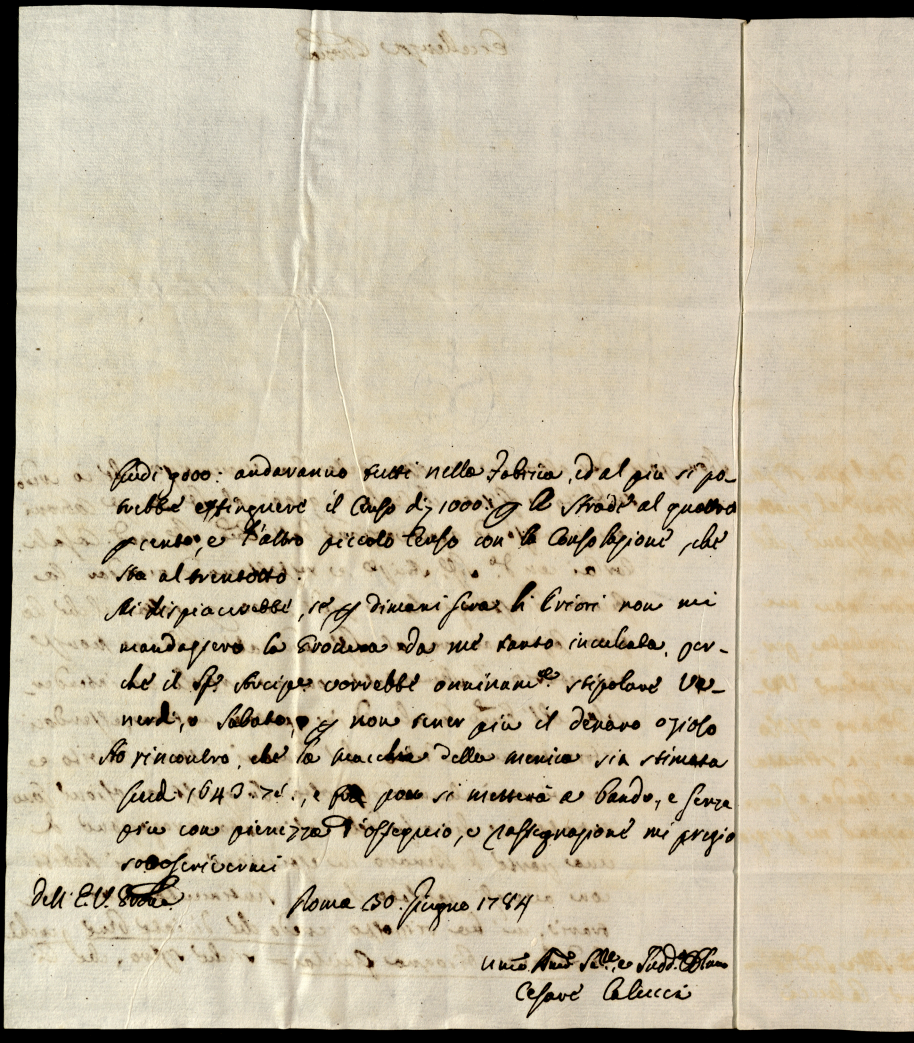 scudi 9000: andaranno tutti nella Fabrica, ed al piu si po-
trebbe estinguere il Censo di 1000: le Strade al quattro
p cento, e l'altro piccolo Censo con la Consolazione, che
sta al trentotto.
Mi dispiacerebbe, se p dimani sera li Priori non mi
mandassero la Procura da me tanto inculcata, per-
ché il vorrebbe onninam.te stipolare Ve-
nerdi, o Sabato, p non tener piu il denaro ozioso
Ho rincontro, che la macchia della menica sia stimata
scudi 1643:75:, e poi si metterà a bando, e senza
piu con pienezza d'ossequio, e rassegnazione mi pregio
sottoscrivermi
Dell' E. V. Prōne
Roma 30. Giugno 1784
Umo
Cesare Colucci